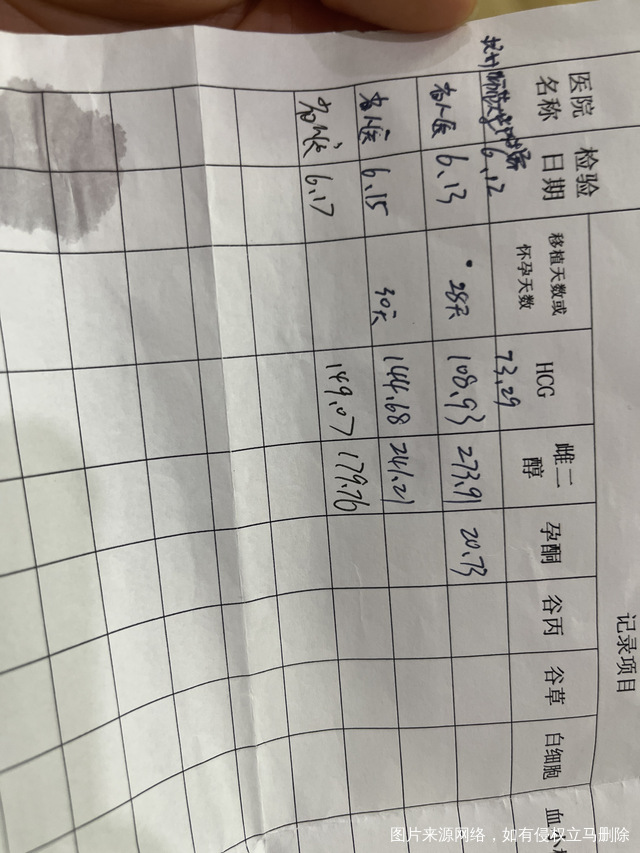 记录项目
医院名称 检验日期 移植天数或怀孕天数 HCG 雌二醇 孕酮 谷丙 谷草 白细胞
6.12 73.29
省人医 6.13 28天 108.93 273.91 20.73
省人医 6.15 30天 144.68 241.21
省人医 6.17 149.07 179.76
图片来源网络，如有侵权立马删除